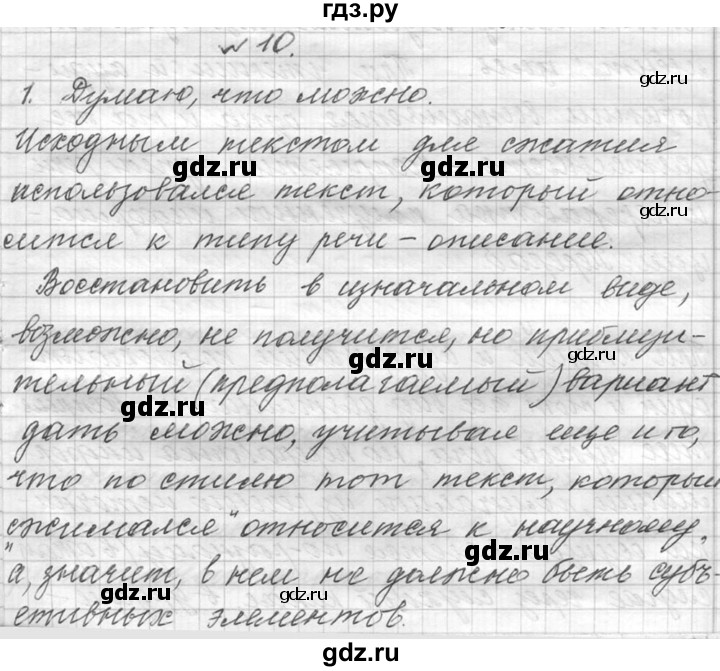 гдз.ру
№ 10.
gdz.ru
1. Думаю, что можно.
Исходным текстом для сжатия
gdz.ru
gdz.ru
использовался текст, который отно-
gdz.ru
сится к типу речи – описание.
Восстановить в изначальном виде,
gdz.ru
возможно, не получится, но приблизи-
gdz.ru
gdz.ru
тельный (предполагаемый) вариант
gdz.ru
дать можно, учитывая еще и то,
что по стилю тот текст, который
„сжимался“ относится к научному,
gdz.ru
а, значит, в нем не должно быть субъ-
gdz.ru
gdz.ru
ективных элементов.
gdz.ru